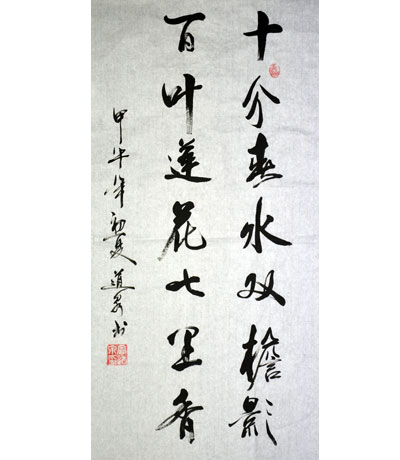 十分春水双檐影
百叶莲花七里香
甲午年初夏道书